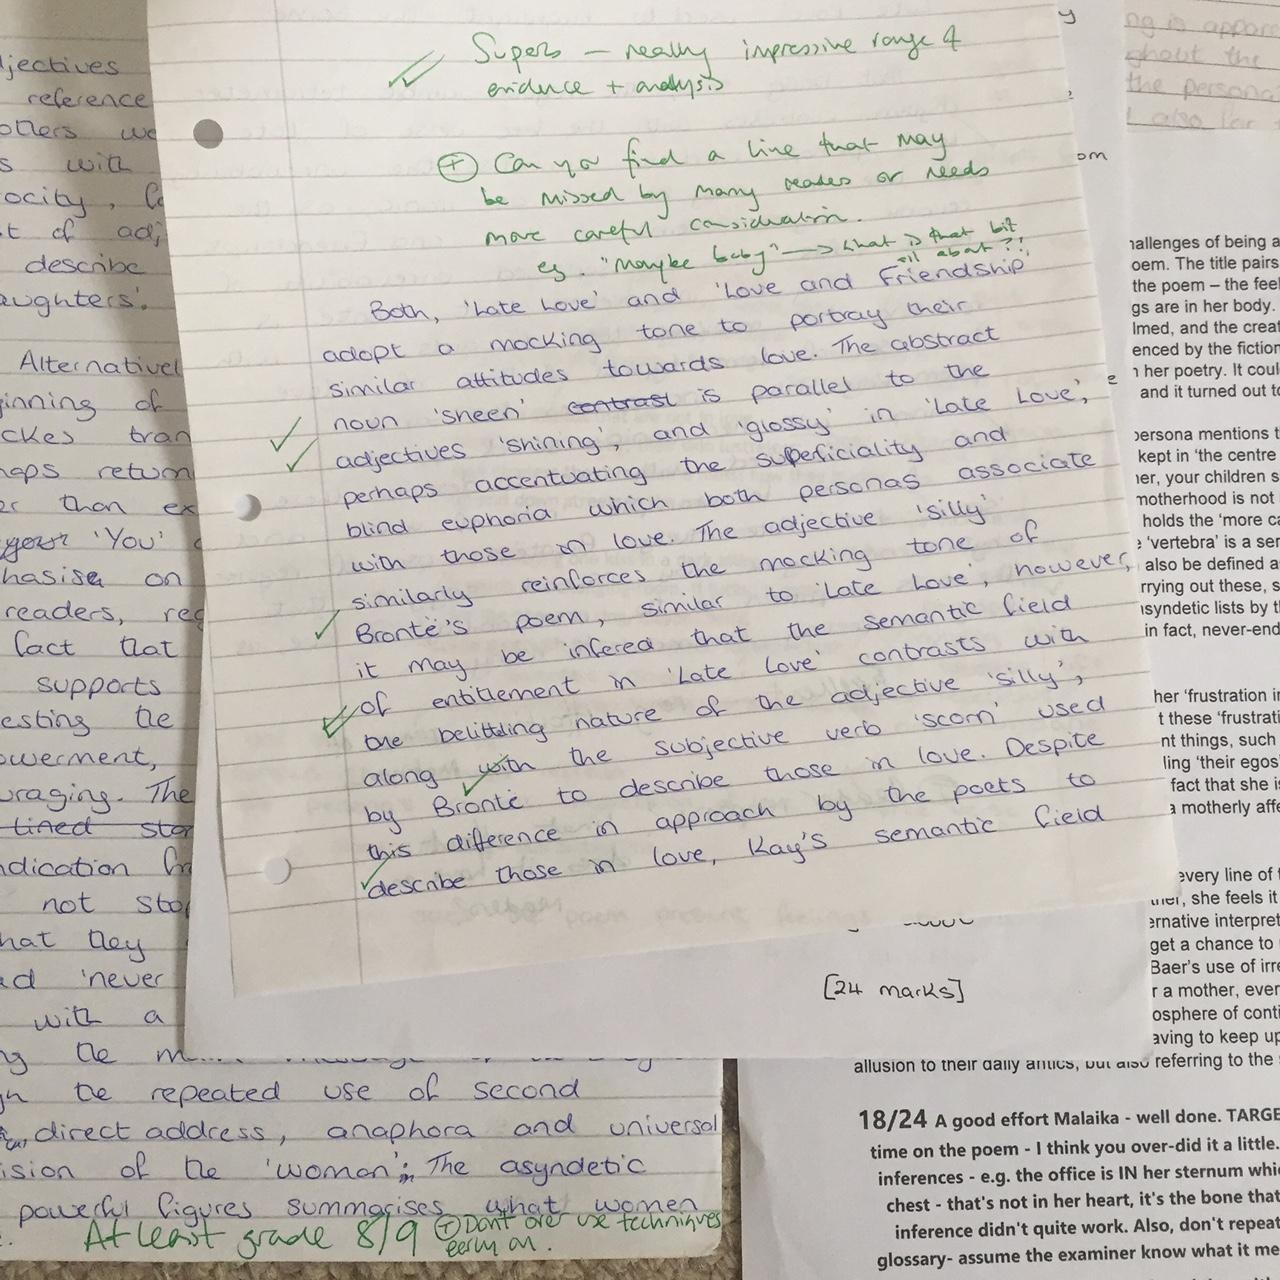 Superb — really impressive range of
evidence + analysis
+ Can you find a line that may
be missed by many readers or needs
more careful consideration.
eg. "Maybe baby" → what is that bit
all about ?!
Both, 'Late Love' and 'Love and Friendship'
adopt a mocking tone to portray their
similar attitudes towards love. The abstract
noun 'sheen' contrast is parallel to the
adjectives 'shining', and 'glossy' in 'Late Love',
perhaps accentuating the superficiality and
blind euphoria which both personas associate
with those in love. The adjective 'silly'
similarly reinforces the mocking tone of
Brontë's poem, similar to 'Late Love', however,
it may be infered that the semantic field
of entitlement in 'Late Love' contrasts with
the belittling nature of the adjective 'silly',
along with the subjective verb 'scorn' used
by Brontë to describe those in love. Despite
this difference in approach by the poets to
describe those in love, Kay's semantic field
[24 marks]
jectives
reference
others we
s with
ocity,
t of adj
describe
aughters'.
Alternativel
inning of
ckes tran
haps return
er than ex
'You'
hasise on
readers, reg
fact that
supports
esting the
owerment,
uraging. The
tired stor
ndication
not stop
hat they
ad 'never
with a
ng the
gh the repeated use of second
direct address, anaphora and universal
ision of the 'woman'; The asyndetic
powerful figures summarises what women
At least grade 8/9 + Dont over use techniques
early on.
ng is appare
ghout the
the persona
also far
om
e
hallenges of being a
oem. The title pairs
the poem – the feel
gs are in her body.
lmed, and the creat
enced by the fiction
her poetry. It coul
and it turned out to
persona mentions t
kept in 'the centre
her, your children s
motherhood is not
holds the 'more ca
'vertebra' is a ser
also be defined a
rrying out these, s
asyndetic lists by t
in fact, never-end
her 'frustration in
t these 'frustrati
nt things, such
ling 'their egos'
fact that she is
a motherly affe
every line of
she feels it
ernative interpret
get a chance to
Baer's use of irre
r a mother, ever
osphere of conti
aving to keep up
allusion to their daily antics, but also referring to the
18/24 A good effort Malaika - well done. TARGE
time on the poem - I think you over-did it a little.
inferences - e.g. the office is IN her sternum whi
chest - that's not in her heart, it's the bone that
inference didn't quite work. Also, don't repeat
glossary- assume the examiner know what it me